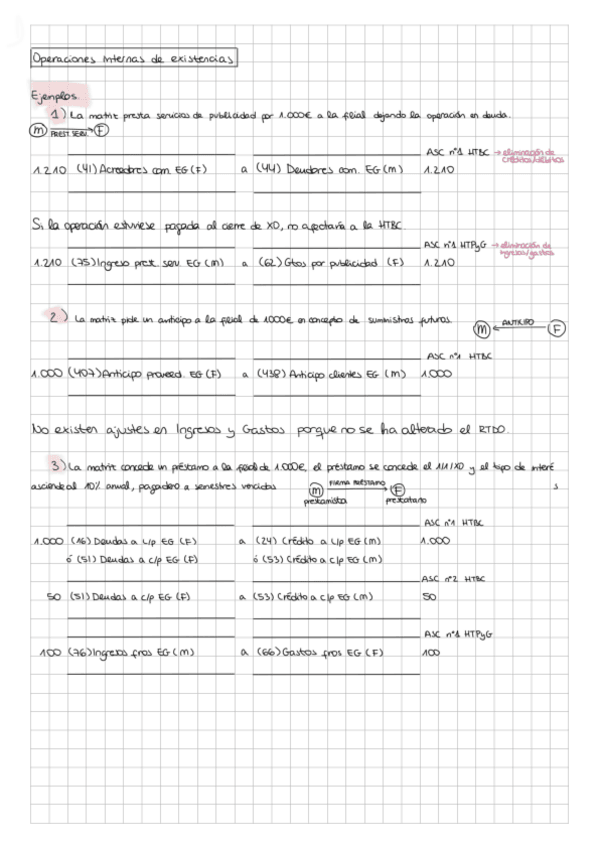 Operaciones internas de existencias
Ejemplos.
1) La matriz presta servicios de publicidad por 1.000€ a la filial dejando la operación en deuda.
M PREST. SERV. F
ASC nº1 HTBC → eliminación de
créditos/débitos
1.210 (41) Acreedores com. EG (F) a (44) Deudores com. EG (m) 1.210
Si la operación estuviese pagada al cierre de X0, no afectaría a la HTBC
ASC nº1 HTPyG → eliminación de
ingresos/gastos
1.210 (75) Ingreso prest. serv. EG (m) a (62) Gtos por publicidad (F) 1.210
2) La matriz pide un anticipo a la filial de 1000€ en concepto de suministros futuros.
M ANTICIPO F
ASC nº1 HTBC
1.000 (407) Anticipo proveed. EG (F) a (438) Anticipo clientes EG (m) 1.000
No existen ajustes en Ingresos y Gastos porque no se ha alterado el RTDO.
3) La matriz concede un préstamo a la filial de 1.000€, el préstamo se concede el 1/1/X0 y el tipo de interé
s
asciende al 10% anual, pagadero a semestres vencidos
M FIRMA PRÉSTAMO F
prestamista prestatario
ASC nº1 HTBC
1.000 (16) Deudas a L/p EG (F) a (24) Crédito a L/p EG (m) 1.000
ó (51) Deudas a c/p EG (F) ó (53) Crédito a c/p EG (m)
ASC nº2 HTBC
50 (51) Deudas a c/p EG (F) a (53) Crédito a c/p EG (m) 50
ASC nº1 HTPyG
100 (76) Ingresos fros EG (m) a (66) Gastos fros EG (F) 100